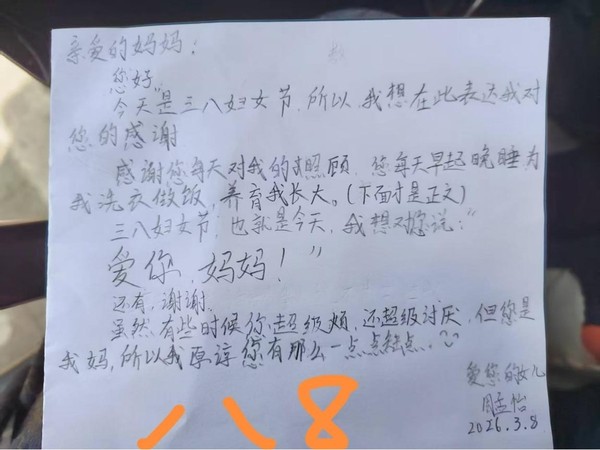 亲爱的妈妈：
您好，
今天是三八妇女节，所以，我想在此表达我对
您的感谢
感谢您每天对我的照顾，您每天早起晚睡为
我洗衣做饭，养育我长大。（下面才是正文）
三八妇女节，也就是今天，我想对您说："
爱你，妈妈！"
还有，谢谢，
虽然，有些时候你超级烦，还超级讨厌，但您是
我妈，所以我原谅您有那么一点点缺点。
爱您的女儿
周孟怡
2026.3.8
八8